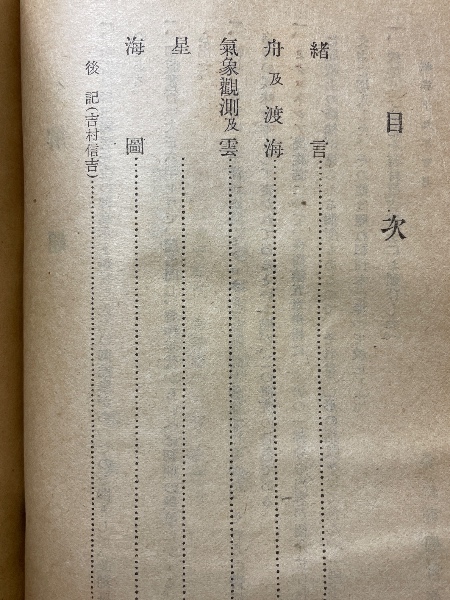 目次
緒言
舟及渡海
氣象觀測及雲
星
海圖
後記(吉村信吉)